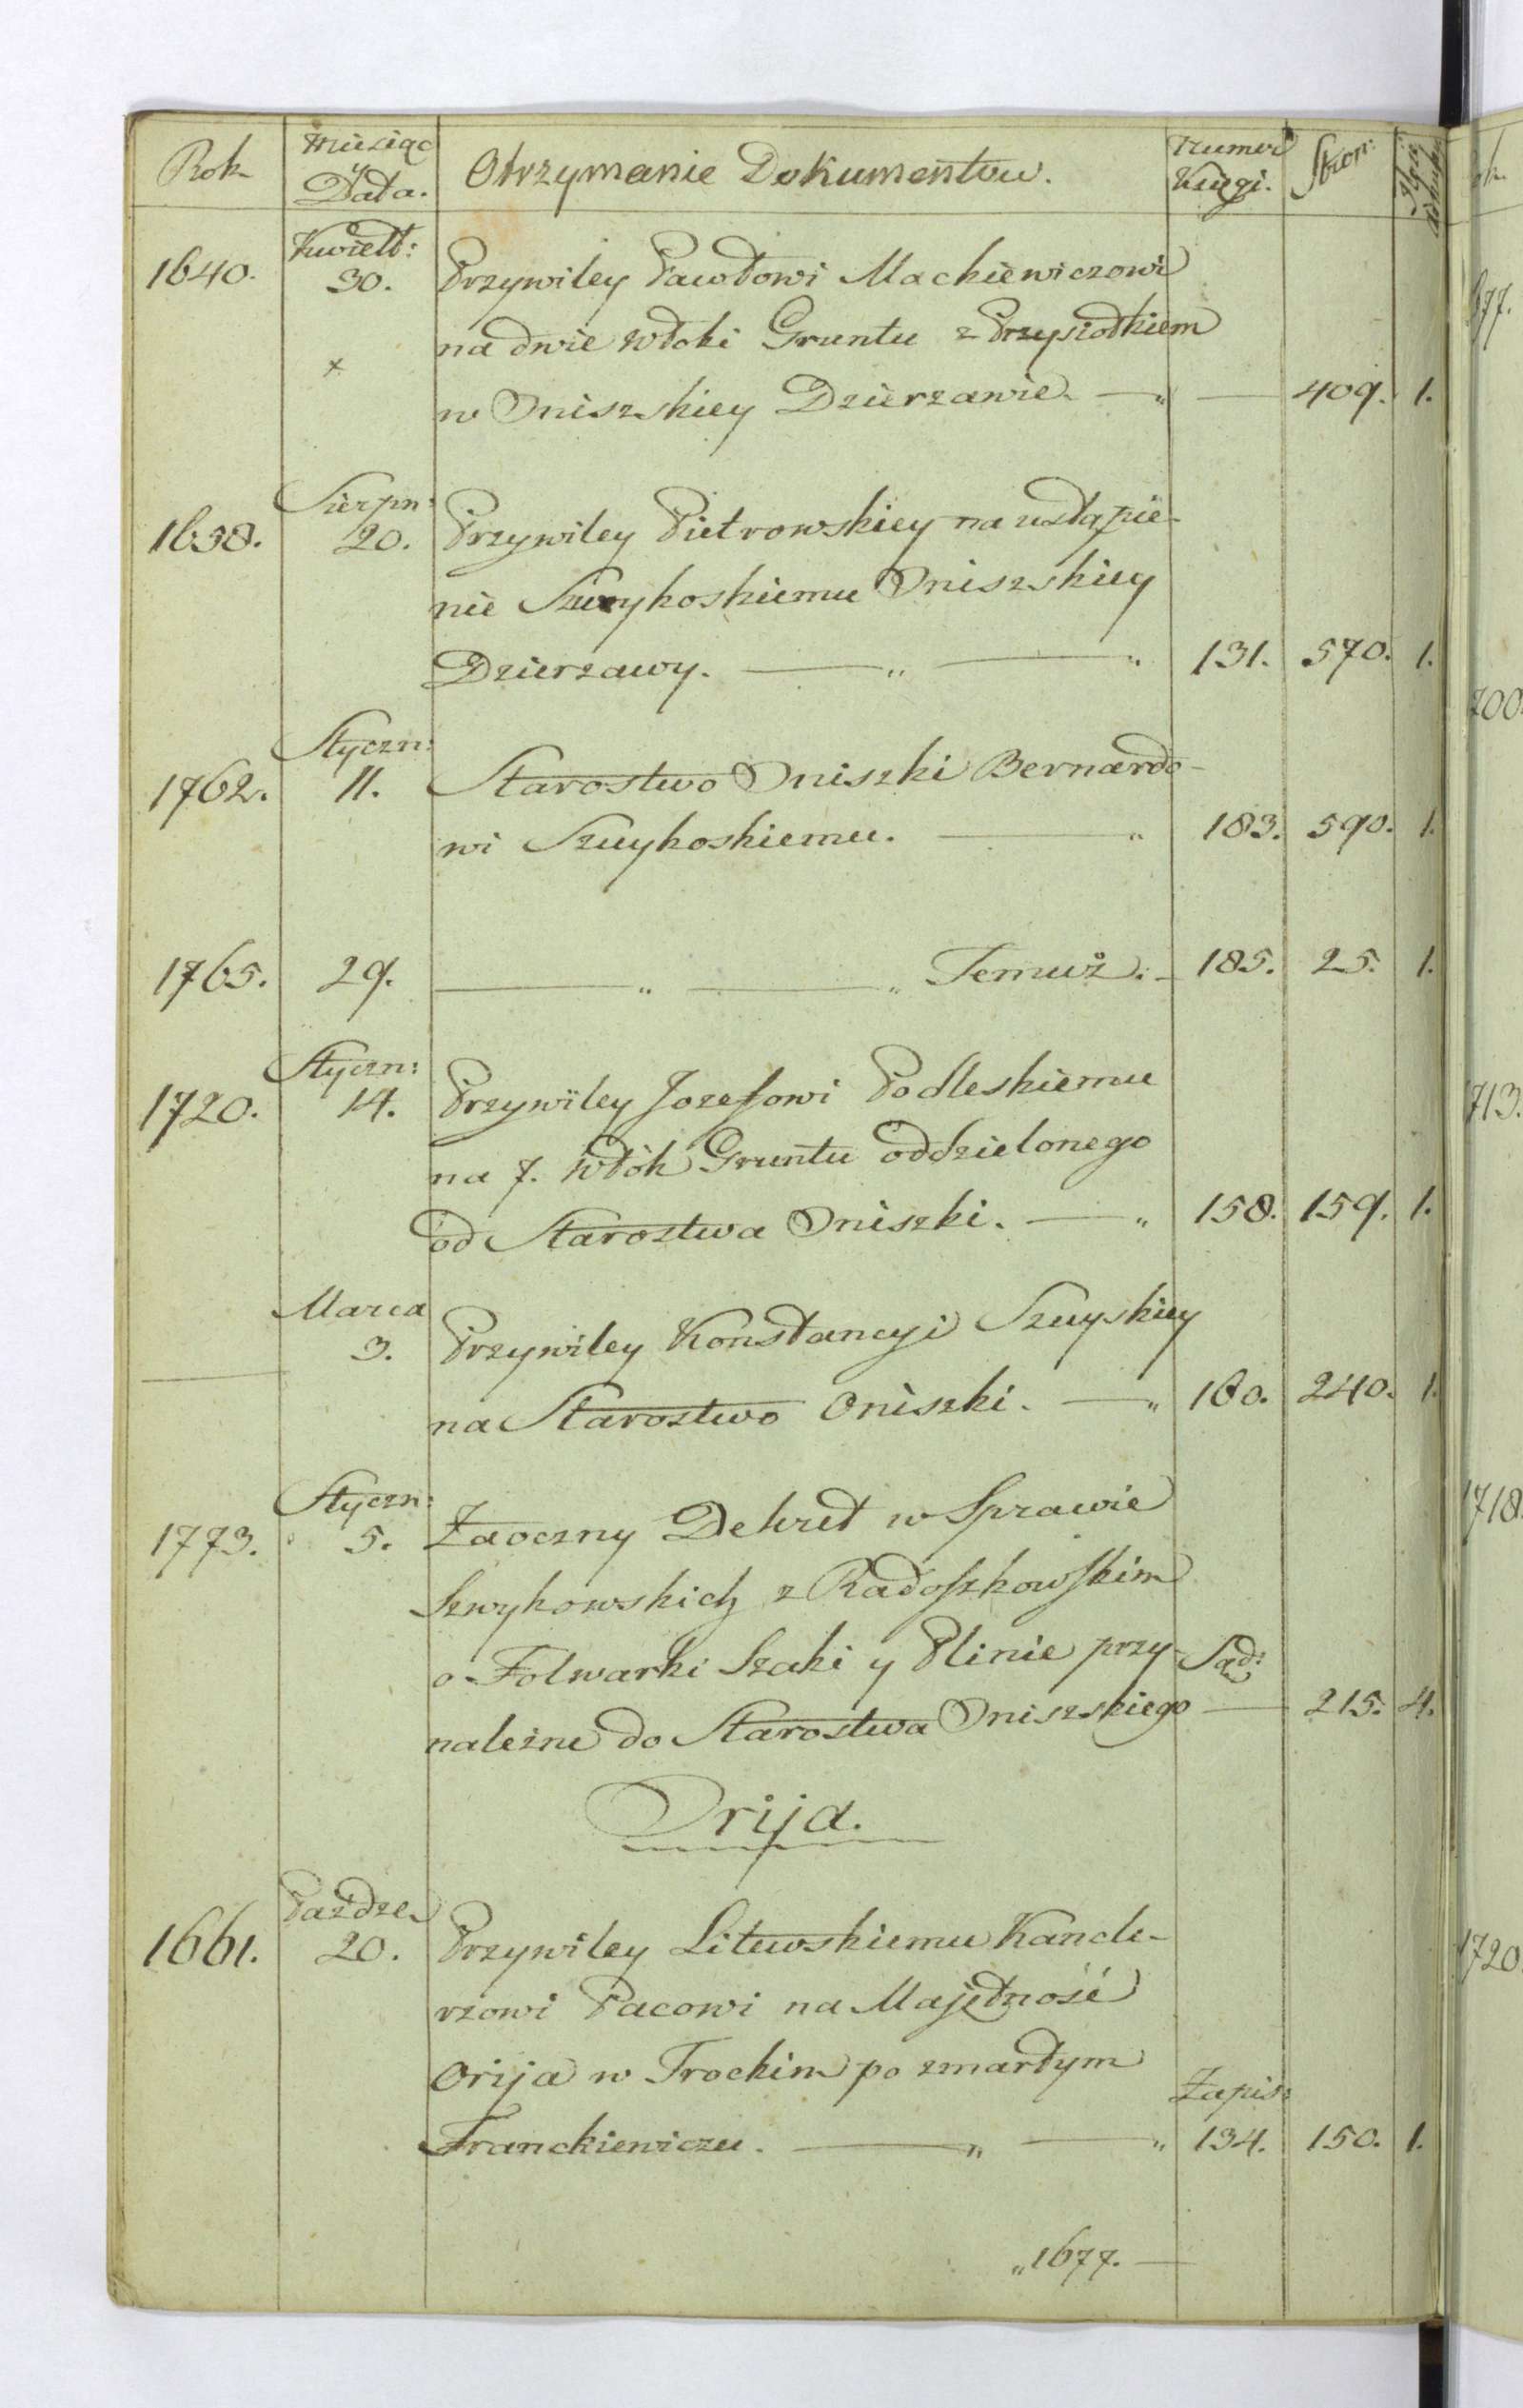 Rok
Miesiąc
y
Data.
Otrzymanie Dokumentow.
Numer
Księgi.
Stron:
1640.
Kwiet:
30.
Przywiley Pawłowi Mackiewiczowi
na dwie włoki Gruntu z Przysiołkiem
×
w Oniszskiey Dzierzawie. — „ — 409. 1.
1638.
Sierpn:
20.
Przywiley Pietrowskiey na ustąpie-
nie Szwykoskiemu Oniszskiey
Dzierzawy. — „ — „ 131. 570. 1.
1762.
Styczn:
11.
Starostwo Oniszki Bernardo-
wi Szuykoskiemu. — „ 183. 590. 1.
1765. 29. — „ — „ Temuż. - 185. 25. 1.
1720.
Styczn:
14.
Przywiley Jozefowi Podleskiemu
na 7. włok Gruntu oddzielonego
od Starostwa Oniszki. — „ 158. 159. 1.
Marca
— 3.
Przywiley Konstancyi Szuyskiey
na Starostwo Oniszki. — „ 160. 240. 1.
1773.
Styczn:
5.
Zaoczny Dekret w Sprawie
Szwykowskich z Radoszkowskim
o Folwarki Szaki y Plinie przy- Sąd:
należne do Starostwa Oniszskiego — 215. 4.
Orija.
1661.
Paźdze.
20.
Przywiley Litewskiemu Kancle-
rzowi Pacowi na Majętność
Orija w Trockim po zmarłym
Zapis:
Franckiewiczu. — „ — „ 134. 150. 1.
„1677. —
677.
700.
713.
1718.
1720.